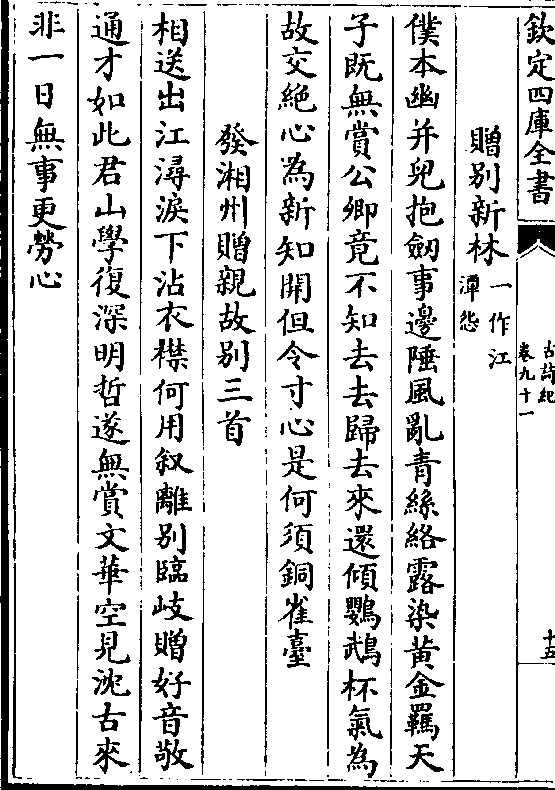 欽定四庫全書
古詩紀
卷九十一
十五
贈別新林一作江潭怨
僕本幽并兒抱劒事邊陲風亂青絲絡露染黃金羈天
子既無賞公卿竟不知去去歸去來還傾鸚鵡杯氣為
故交絶心為新知開但令寸心是何須銅雀臺
發湘州贈親故別三首
相送出江潯淚下沾衣襟何用叙離別臨岐贈好音敬
通才如此君山學復深明哲遂無賞文華空見沈古來
非一日無事更勞心